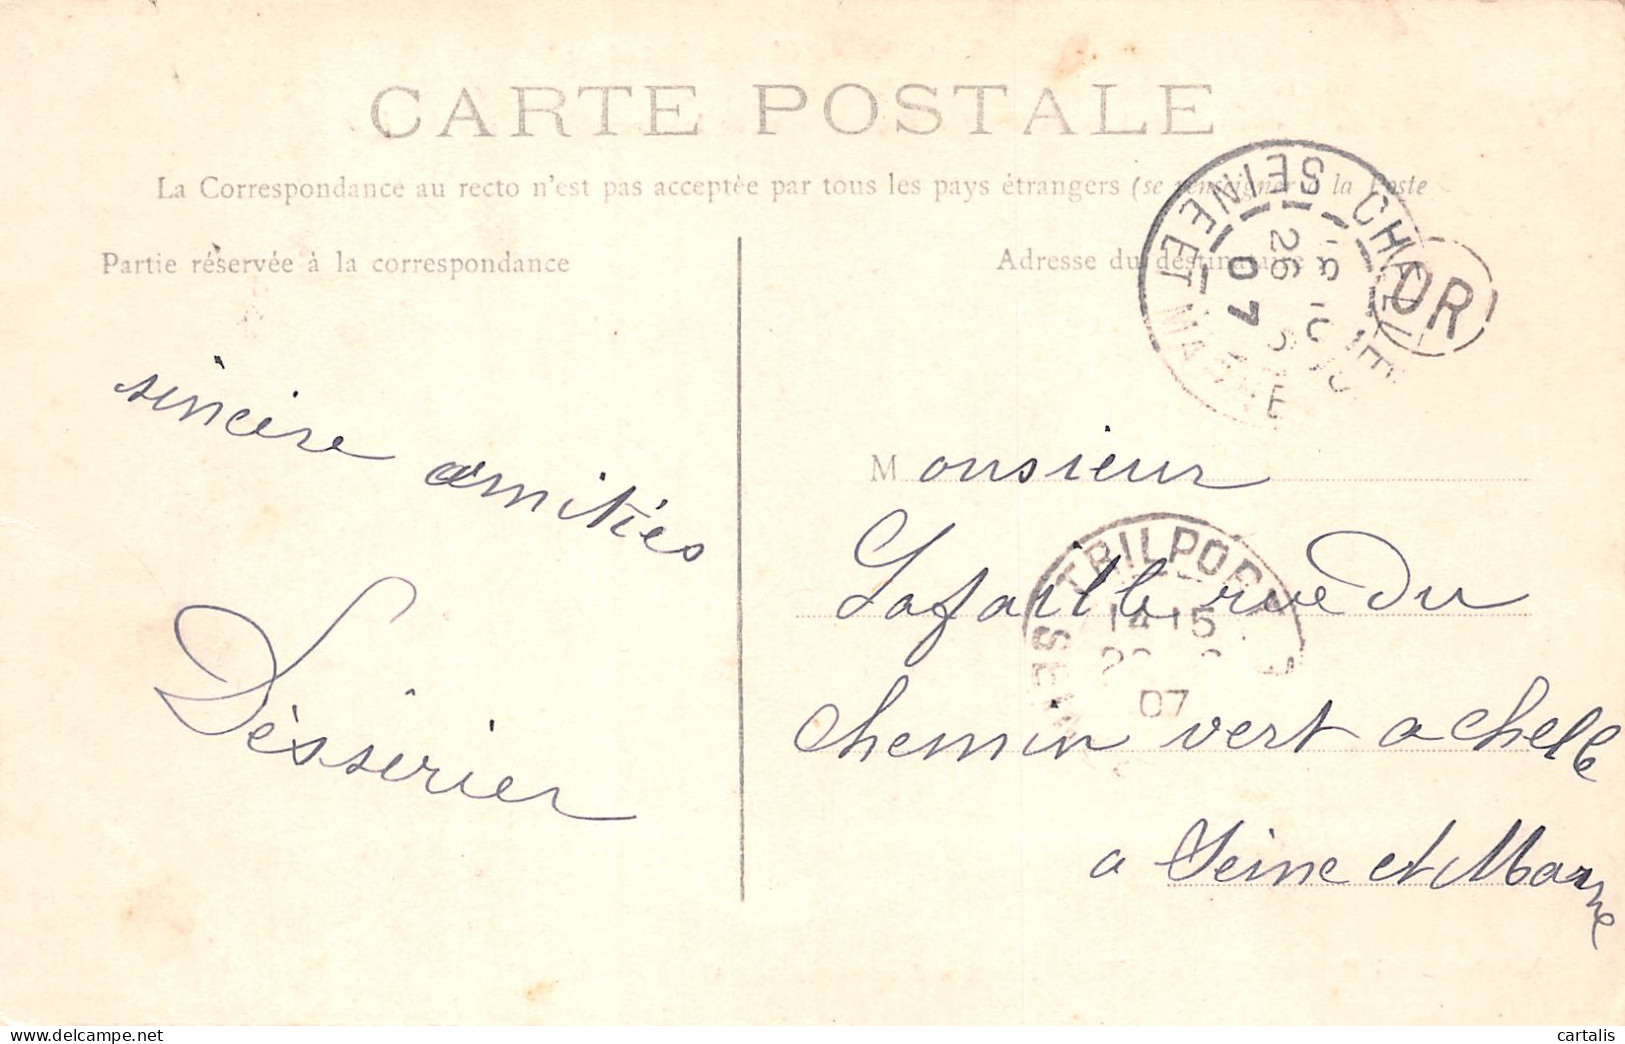 CARTE POSTALE
La Correspondance au recto n'est pas acceptée par tous les pays étrangers (se renseigner à la Poste
Partie réservée à la correspondance
Adresse du destinataire
sincère amitiés
Dèsserier
Monsieur
Lafaille rue du
chemin vert a Chelle
a Seine et Marne
CHELLES
SEINE ET MARNE
26
07
OR
TRILPORT
SEINE
14 15
07
delcampe.net
cartalis